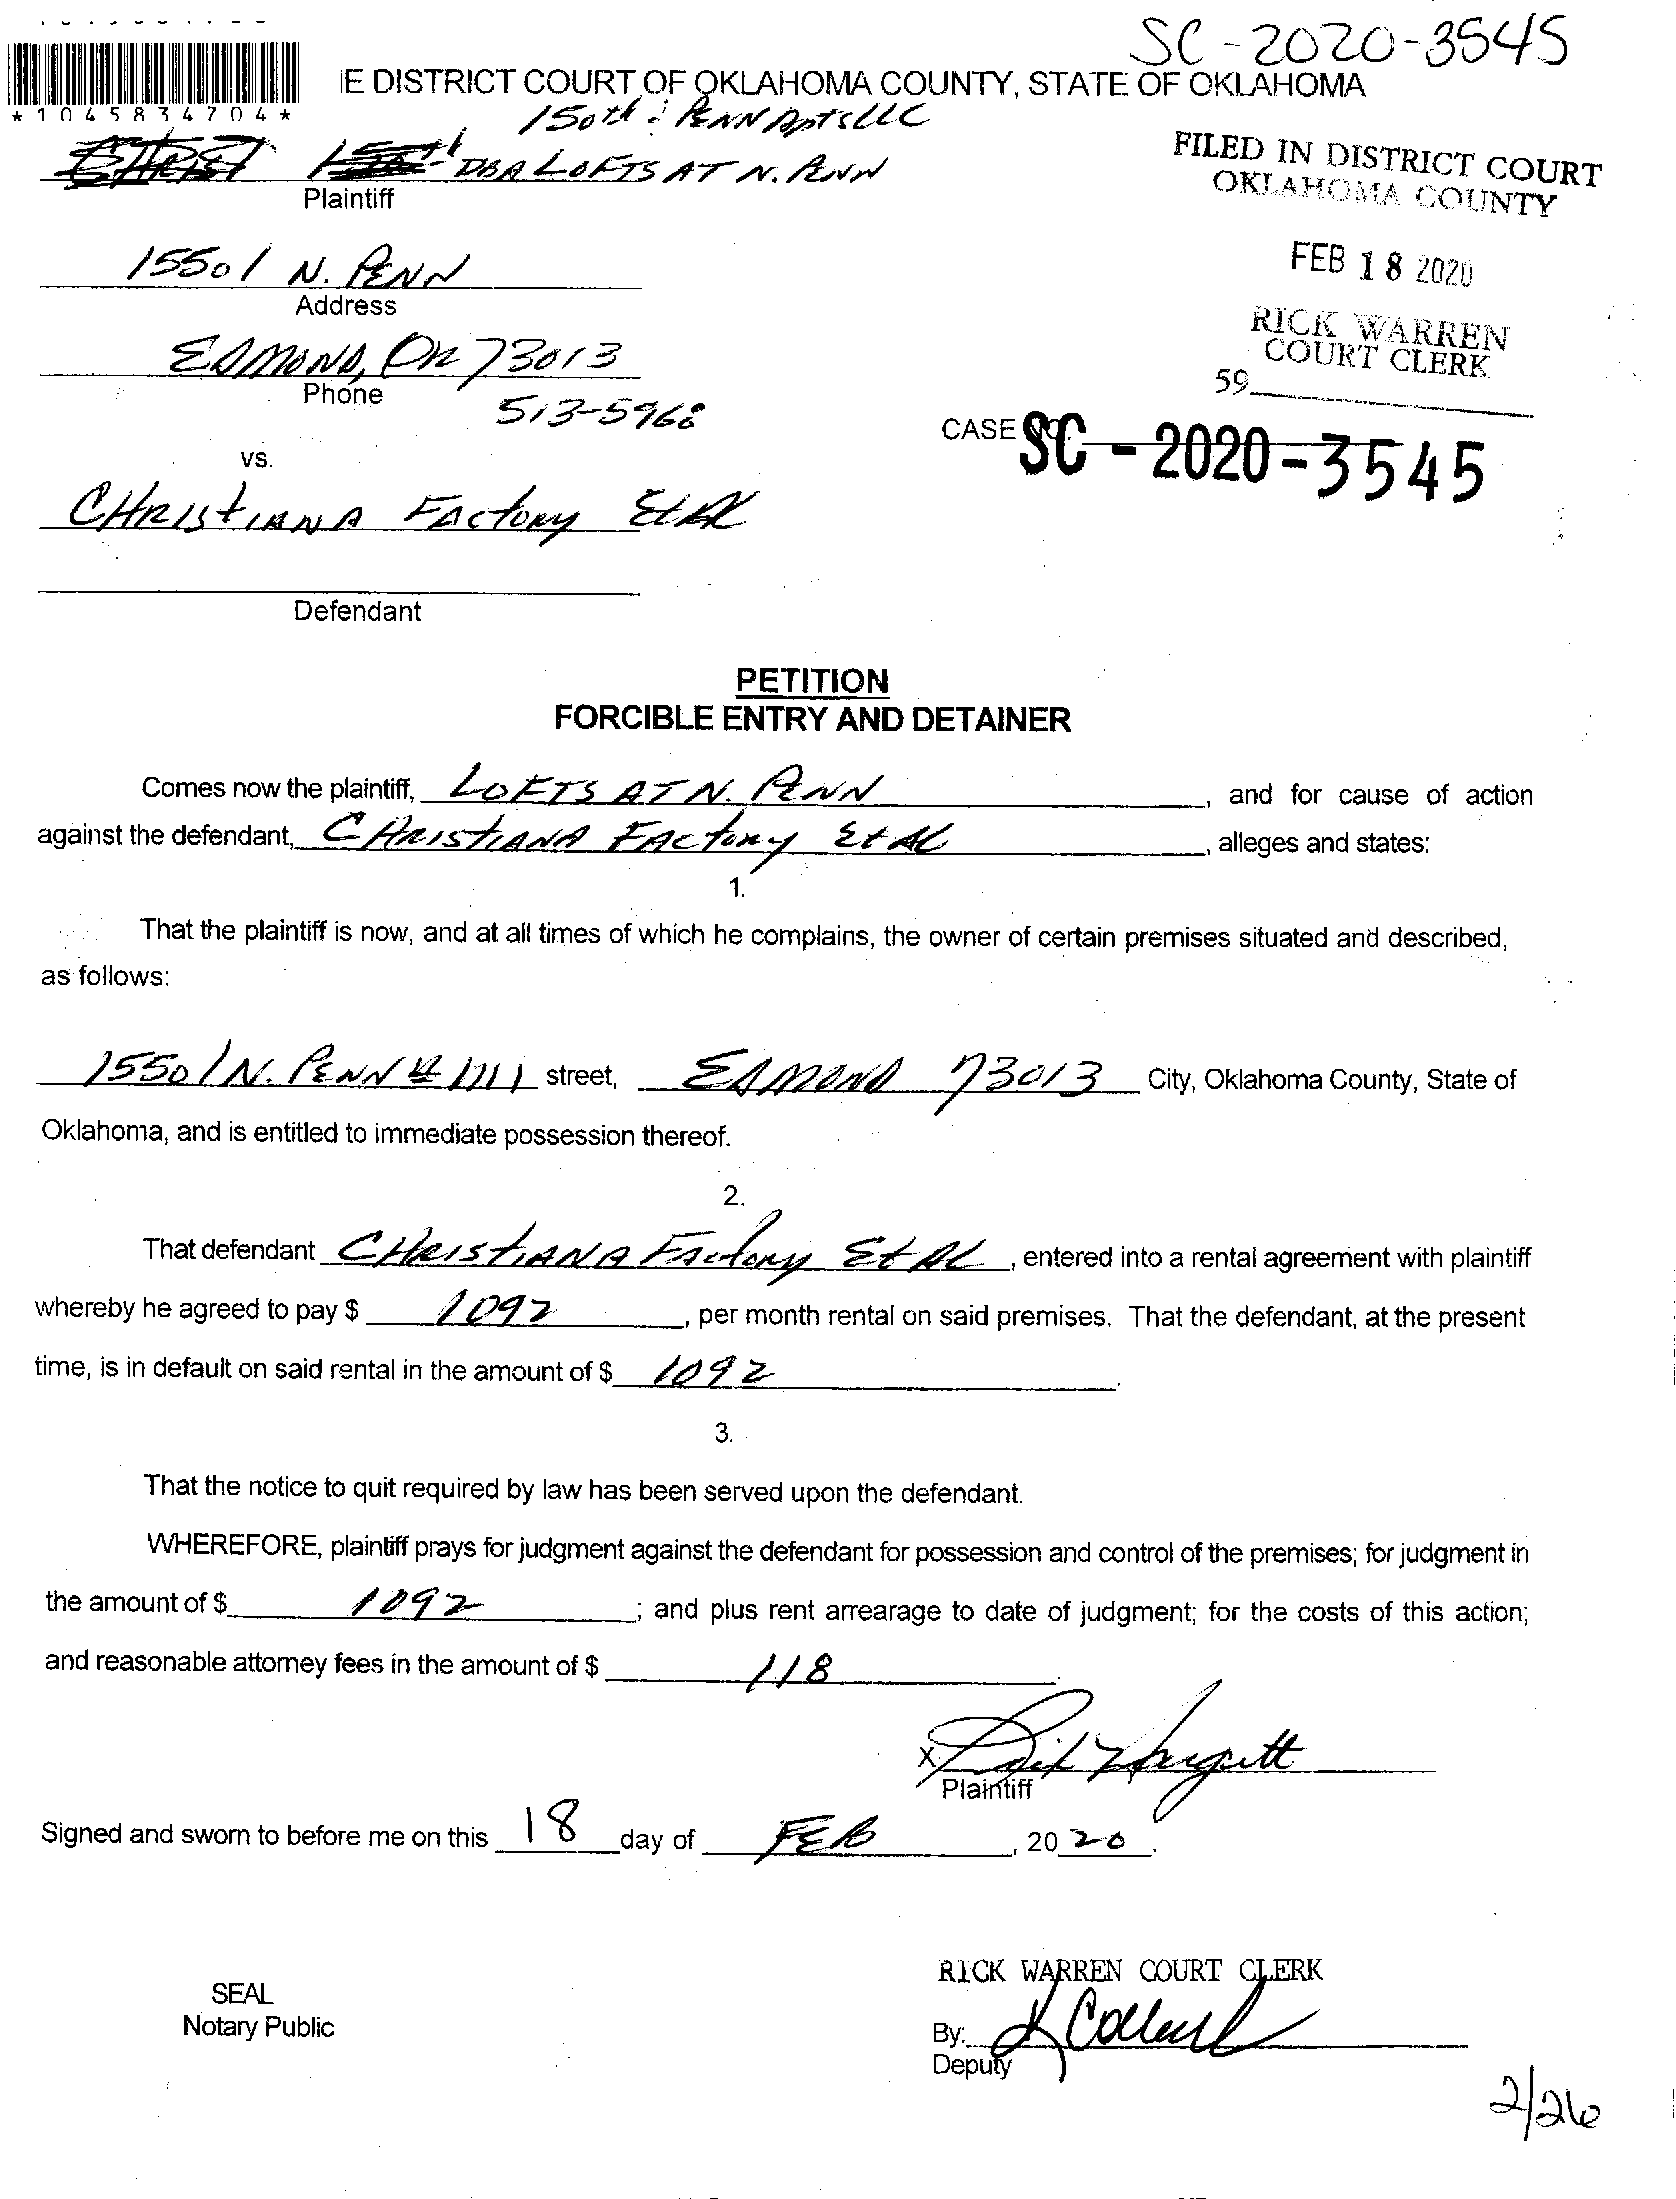 SC-2020-3545
E DISTRICT COURT OF OKLAHOMA COUNTY, STATE OF OKLAHOMA
*1045834704*
150th & PENN Apts LLC
DBA LOFTS AT N. PENN
Plaintiff
FILED IN DISTRICT COURT
OKLAHOMA COUNTY
15501 N. PENN
Address
FEB 18 2020
RICK WARREN
COURT CLERK
EDMOND, OK 73013
Phone
59
513-5968
CASE NO. SC-2020-3545
vs.
CHRISTIANA FACTORY Et AL
Defendant
PETITION
FORCIBLE ENTRY AND DETAINER
Comes now the plaintiff, LOFTS AT N. PENN, and for cause of action
against the defendant, CHRISTIANA FACTORY Et AL, alleges and states:
1.
That the plaintiff is now, and at all times of which he complains, the owner of certain premises situated and described,
as follows:
15501 N. PENN # 1111 street, EDMOND 73013 City, Oklahoma County, State of
Oklahoma, and is entitled to immediate possession thereof.
2.
That defendant CHRISTIANA FACTORY Et AL, entered into a rental agreement with plaintiff
whereby he agreed to pay $ 1092, per month rental on said premises. That the defendant, at the present
time, is in default on said rental in the amount of $ 1092.
3.
That the notice to quit required by law has been served upon the defendant.
WHEREFORE, plaintiff prays for judgment against the defendant for possession and control of the premises; for judgment in
the amount of $ 1092; and plus rent arrearage to date of judgment; for the costs of this action;
and reasonable attorney fees in the amount of $ 118.
X
Plaintiff
Signed and sworn to before me on this 18 day of FEB, 2020.
RICK WARREN COURT CLERK
SEAL
Notary Public
By:
Deputy
2/26